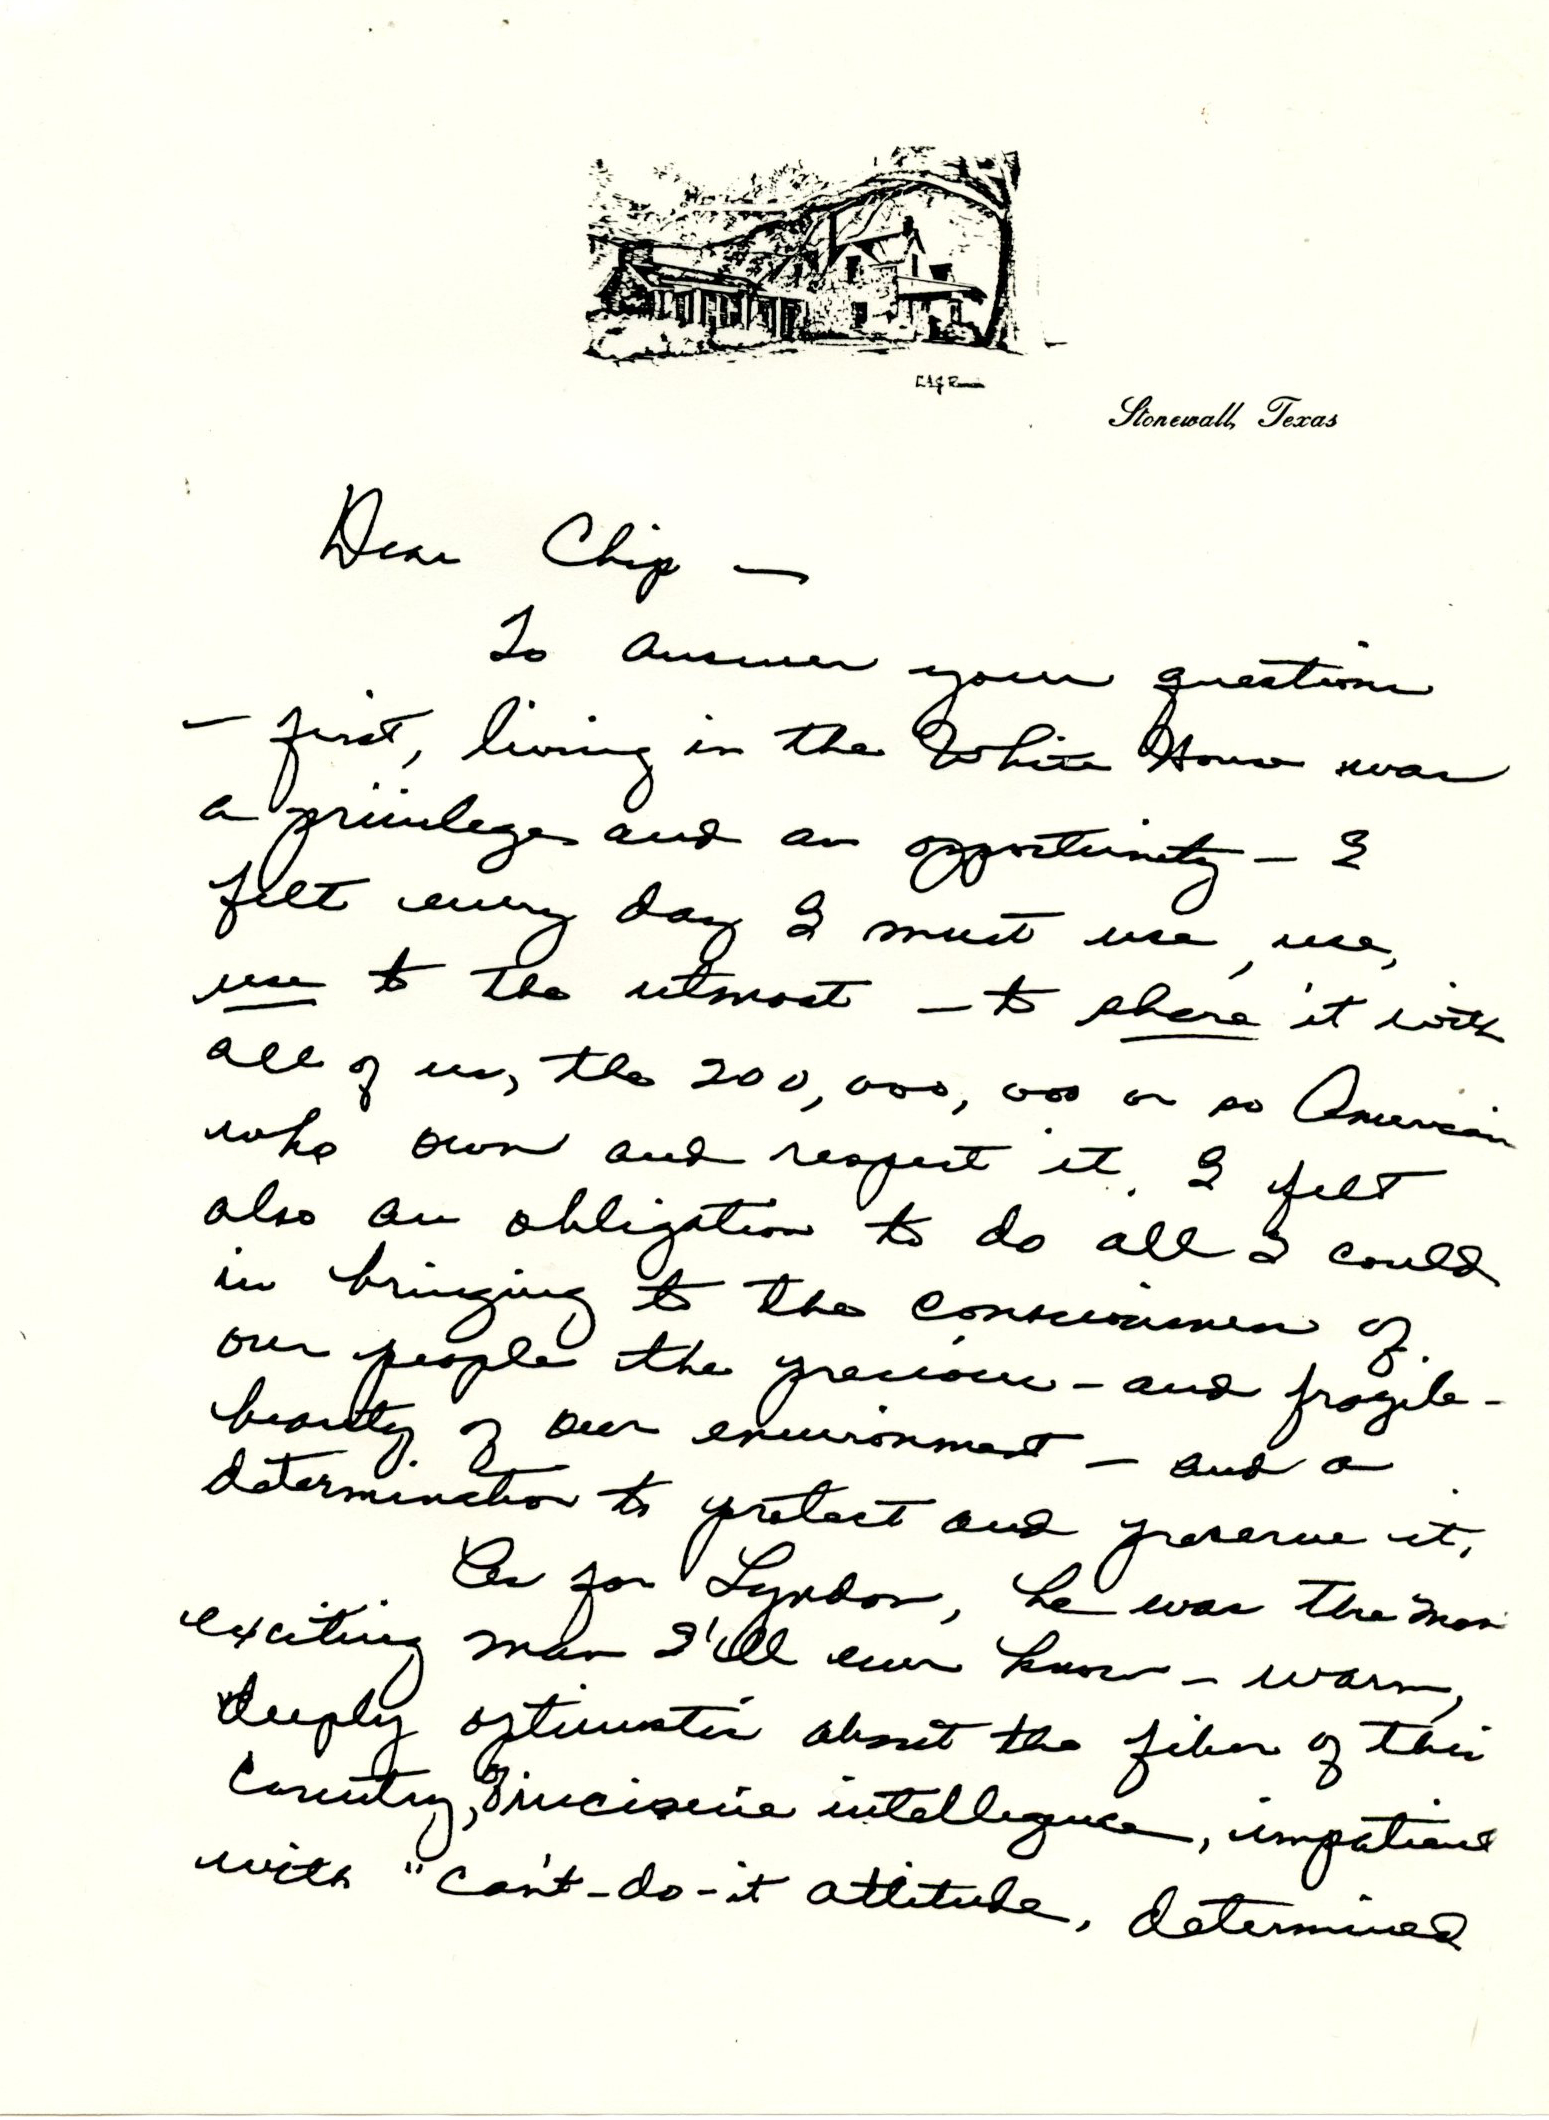 Stonewall, Texas
Dear Chip —
To answer your questions
— first, living in the White House was
a privilege and an opportunity — I
felt every day I must use, use,
use to the utmost — to share it with
all of us, the 200,000,000 or so Americans
who own and respect it. I felt
also an obligation to do all I could
in bringing to the consciousness of
our people the precious — and fragile —
beauty of our environment — and a
determination to protect and preserve it.
As for Lyndon, he was the most
exciting man I'll ever know — warm,
deeply optimistic about the fiber of this
country, incisive intelligence, impatient
with "can't-do-it attitude, determined